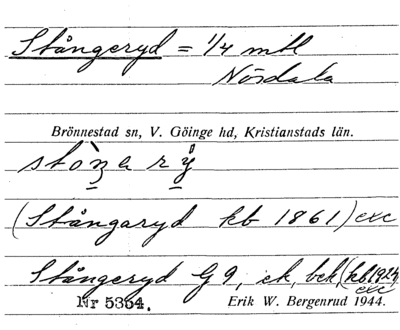 Stångeryd = 1/4 mtl
Nösdala
Brönnestad sn, V. Göinge hd, Kristianstads län.
(Stångaryd kb 1861) exc
Stångeryd G 9, ek, bek, (kb 1924 exc
Nr 5354. Erik W. Bergenrud 1944.